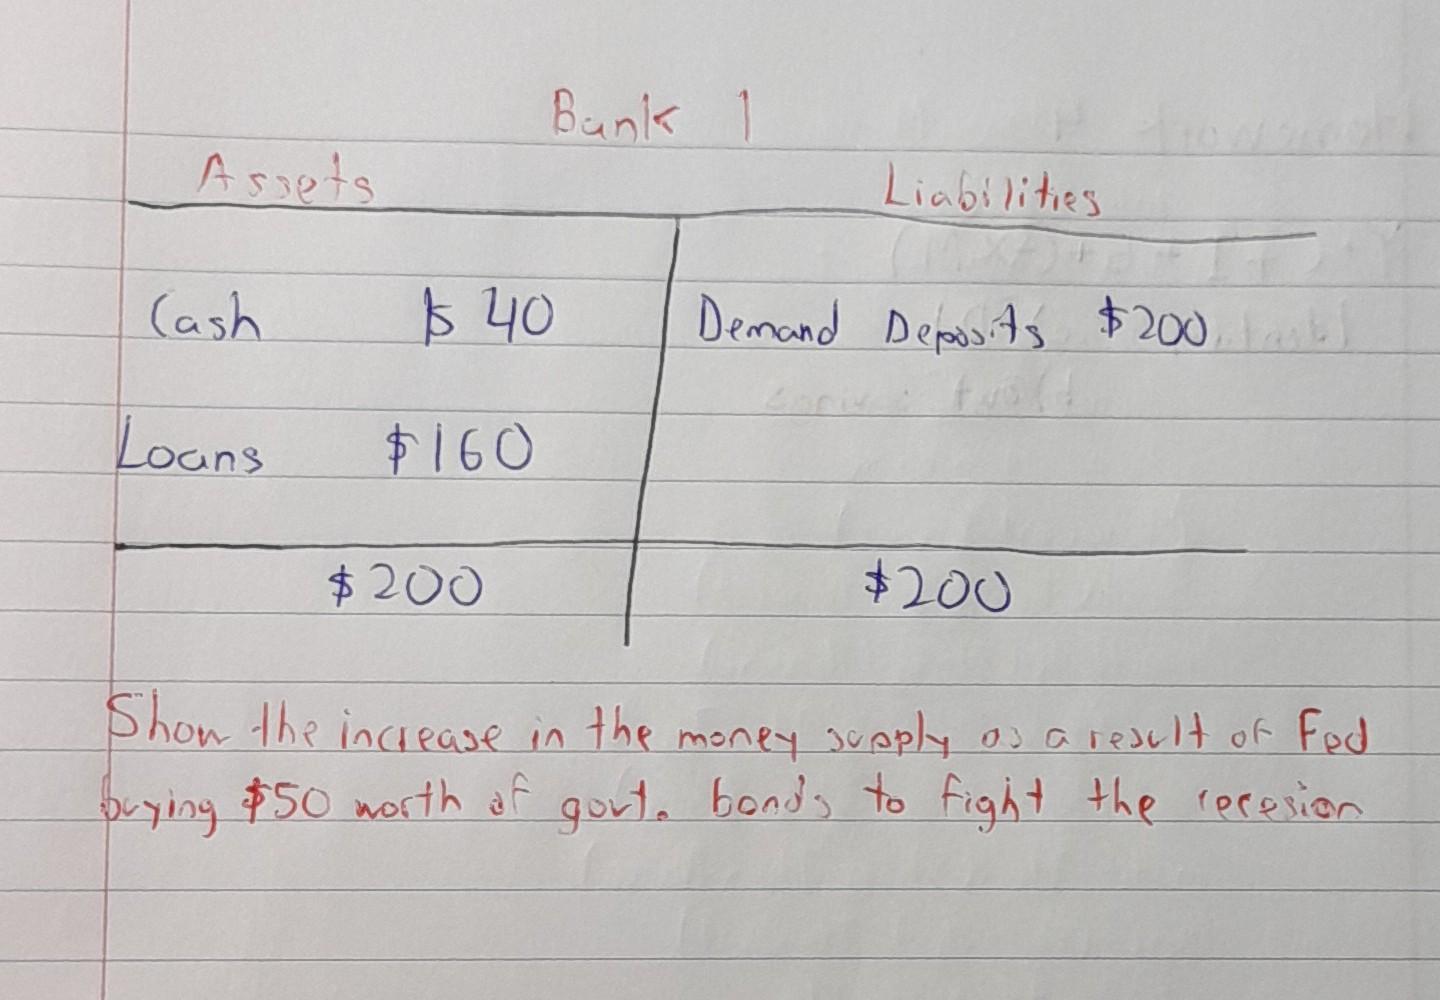 Bank 1
Assets Liabilities
Cash $40 Demand Deposits $200
Loans $160
$200 $200
Show the increase in the money supply as a result of Fed
buying $50 worth of govt. bonds to fight the recesion